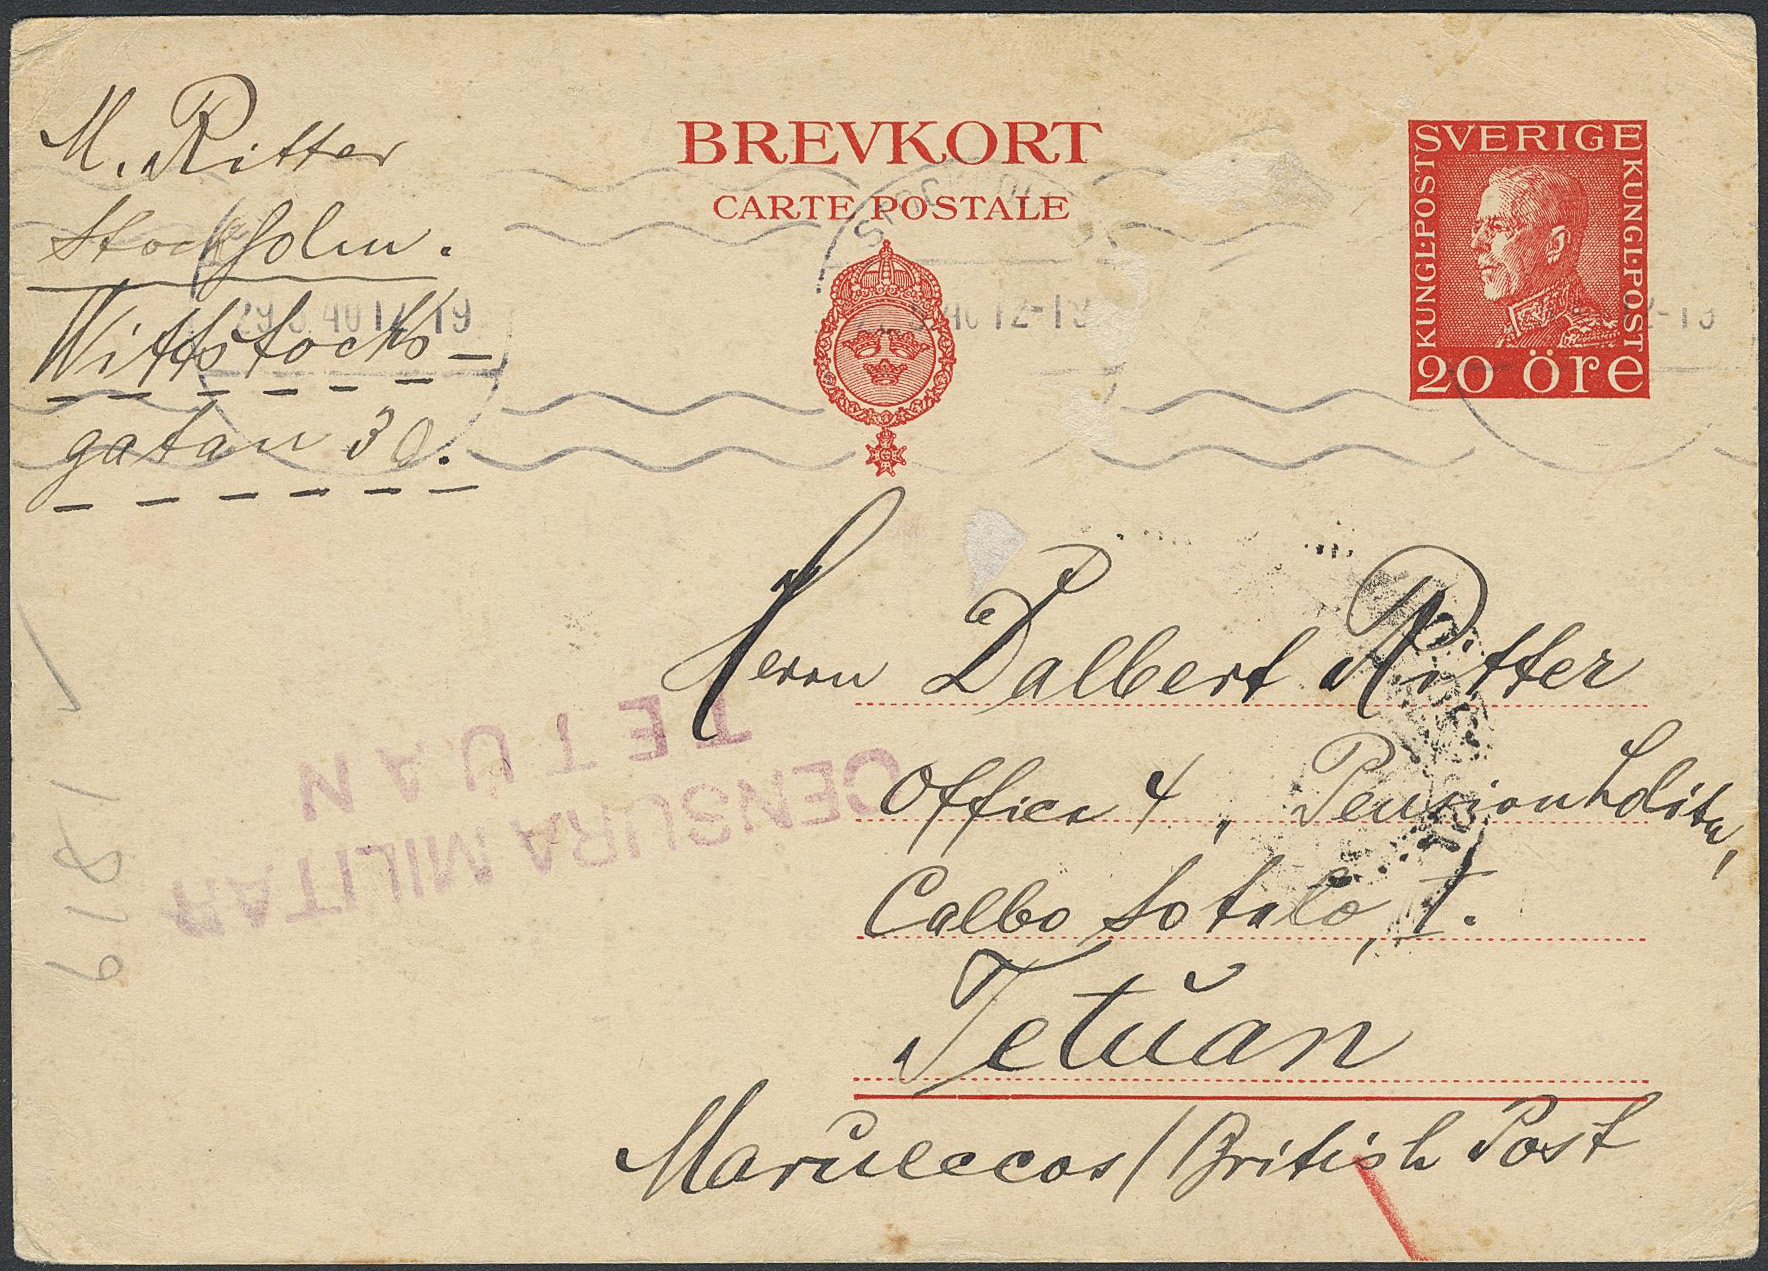 M. Ritter
Stockholm.
Wittstocks-
gatan 30.
BREVKORT
CARTE POSTALE
SVERIGE
KUNGL·POST
KUNGL·POST
20 öre
12-19
Herrn Dalbert Ritter
Office 4, Pension
Calbo Sotelo, I.
Tetŭan
Marŭeccos / British Post
CENSURA MILITAR
TETUAN
6181